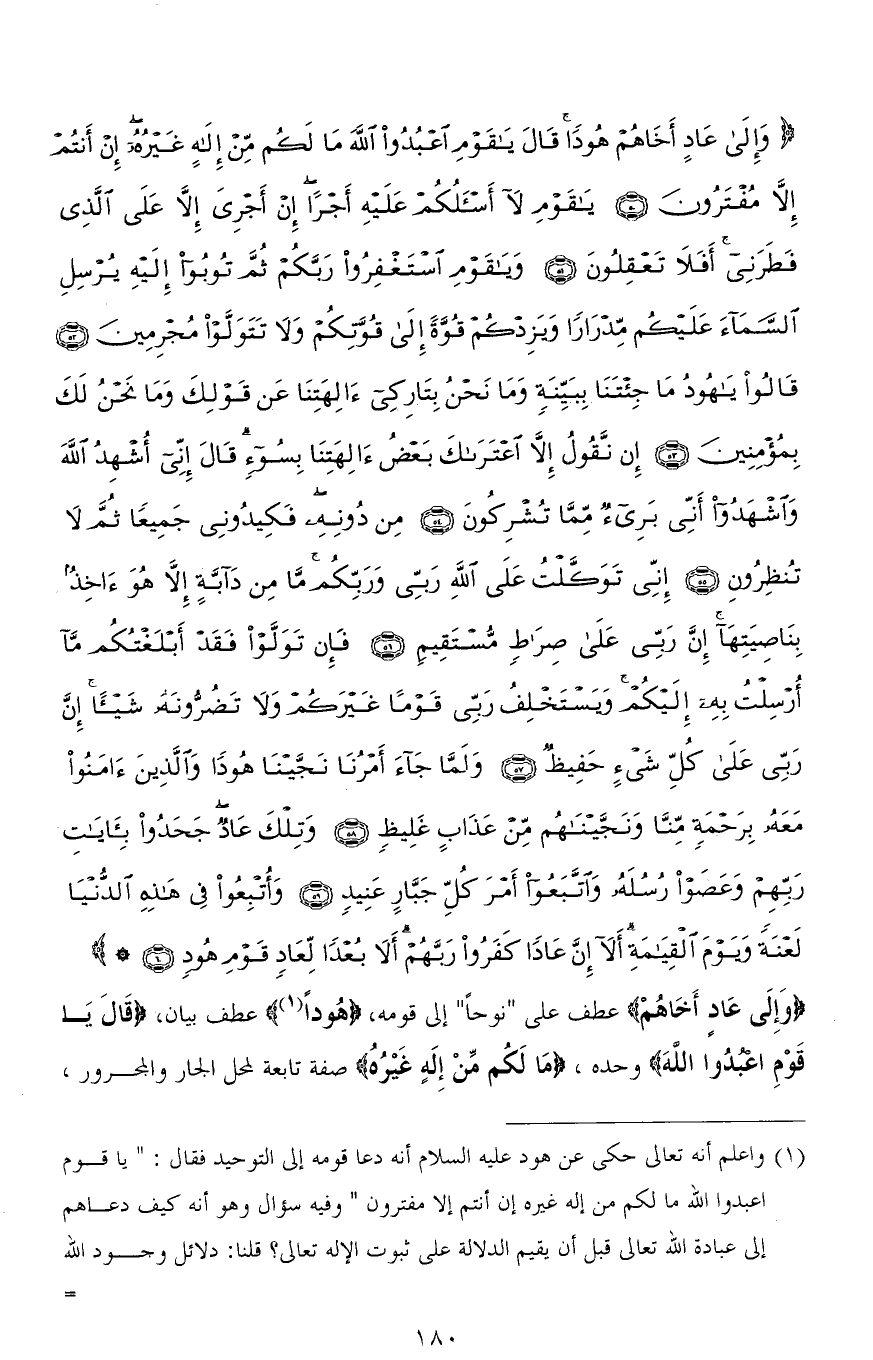 ﴿ وَإِلَىٰ عَادٍ أَخَاهُمْ هُودًا ۚ قَالَ يَـٰقَوْمِ ٱعْبُدُوا۟ ٱللَّهَ مَا لَكُم مِّنْ إِلَـٰهٍ غَيْرُهُۥٓ ۖ إِنْ أَنتُمْ
إِلَّا مُفْتَرُونَ ﴿٥٠﴾ يَـٰقَوْمِ لَآ أَسْـَٔلُكُمْ عَلَيْهِ أَجْرًا ۖ إِنْ أَجْرِىَ إِلَّا عَلَى ٱلَّذِى
فَطَرَنِىٓ ۚ أَفَلَا تَعْقِلُونَ ﴿٥١﴾ وَيَـٰقَوْمِ ٱسْتَغْفِرُوا۟ رَبَّكُمْ ثُمَّ تُوبُوٓا۟ إِلَيْهِ يُرْسِلِ
ٱلسَّمَآءَ عَلَيْكُم مِّدْرَارًا وَيَزِدْكُمْ قُوَّةً إِلَىٰ قُوَّتِكُمْ وَلَا تَتَوَلَّوْا۟ مُجْرِمِينَ ﴿٥٢﴾
قَالُوا۟ يَـٰهُودُ مَا جِئْتَنَا بِبَيِّنَةٍ وَمَا نَحْنُ بِتَارِكِىٓ ءَالِهَتِنَا عَن قَوْلِكَ وَمَا نَحْنُ لَكَ
بِمُؤْمِنِينَ ﴿٥٣﴾ إِن نَّقُولُ إِلَّا ٱعْتَرَىٰكَ بَعْضُ ءَالِهَتِنَا بِسُوٓءٍ ۗ قَالَ إِنِّىٓ أُشْهِدُ ٱللَّهَ
وَٱشْهَدُوٓا۟ أَنِّى بَرِىٓءٌ مِّمَّا تُشْرِكُونَ ﴿٥٤﴾ مِن دُونِهِۦ ۖ فَكِيدُونِى جَمِيعًا ثُمَّ لَا
تُنظِرُونِ ﴿٥٥﴾ إِنِّى تَوَكَّلْتُ عَلَى ٱللَّهِ رَبِّى وَرَبِّكُم ۚ مَّا مِن دَآبَّةٍ إِلَّا هُوَ ءَاخِذٌۢ
بِنَاصِيَتِهَآ ۚ إِنَّ رَبِّى عَلَىٰ صِرَٰطٍ مُّسْتَقِيمٍ ﴿٥٦﴾ فَإِن تَوَلَّوْا۟ فَقَدْ أَبْلَغْتُكُم مَّآ
أُرْسِلْتُ بِهِۦٓ إِلَيْكُمْ ۚ وَيَسْتَخْلِفُ رَبِّى قَوْمًا غَيْرَكُمْ وَلَا تَضُرُّونَهُۥ شَيْـًٔا ۚ إِنَّ
رَبِّى عَلَىٰ كُلِّ شَىْءٍ حَفِيظٌ ﴿٥٧﴾ وَلَمَّا جَآءَ أَمْرُنَا نَجَّيْنَا هُودًا وَٱلَّذِينَ ءَامَنُوا۟
مَعَهُۥ بِرَحْمَةٍ مِّنَّا وَنَجَّيْنَـٰهُم مِّنْ عَذَابٍ غَلِيظٍ ﴿٥٨﴾ وَتِلْكَ عَادٌ ۖ جَحَدُوا۟ بِـَٔايَـٰتِ
رَبِّهِمْ وَعَصَوْا۟ رُسُلَهُۥ وَٱتَّبَعُوٓا۟ أَمْرَ كُلِّ جَبَّارٍ عَنِيدٍ ﴿٥٩﴾ وَأُتْبِعُوا۟ فِى هَـٰذِهِ ٱلدُّنْيَا
لَعْنَةً وَيَوْمَ ٱلْقِيَـٰمَةِ ۗ أَلَآ إِنَّ عَادًا كَفَرُوا۟ رَبَّهُمْ ۗ أَلَا بُعْدًا لِّعَادٍ قَوْمِ هُودٍ ﴿٦٠﴾ * ﴾
﴿وَإِلَى عَادٍ أَخَاهُمْ﴾ عطف على "نوحاً" إلى قومه، ﴿هُوداً(١)﴾ عطف بيان، ﴿قَالَ يَــا
قَوْمِ اعْبُدُوا اللَّهَ﴾ وحده ، ﴿مَا لَكُم مِّنْ إِلَهٍ غَيْرُهُ﴾ صفة تابعة لمحل الجار والمجــرور ،
(١) واعلم أنه تعالى حكى عن هود عليه السلام أنه دعا قومه إلى التوحيد فقال : " يا قــوم
اعبدوا الله ما لكم من إله غيره إن أنتم إلا مفترون " وفيه سؤال وهو أنه كيف دعــاهم
إلى عبادة الله تعالى قبل أن يقيم الدلالة على ثبوت الإله تعالى؟ قلنا: دلائل وجــود الله
=
١٨٠